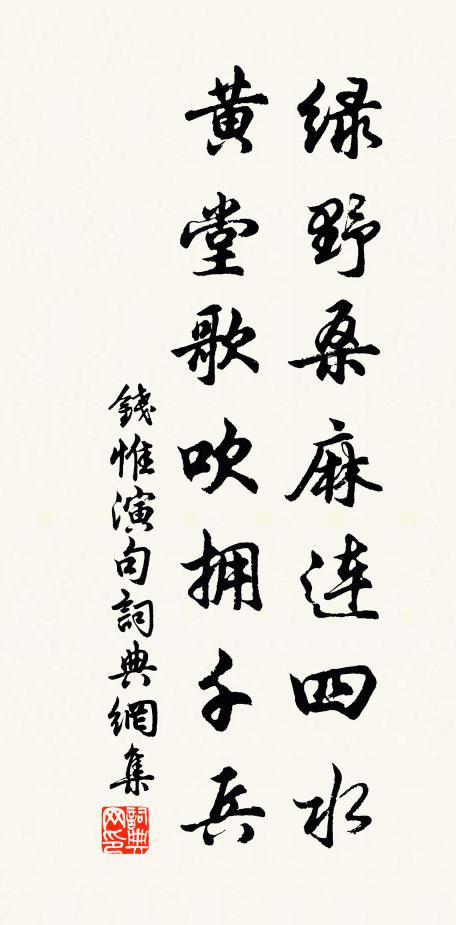 绿野桑麻连四水
黄堂歌吹拥千兵
錢惟演句詞典網集
詞典网印